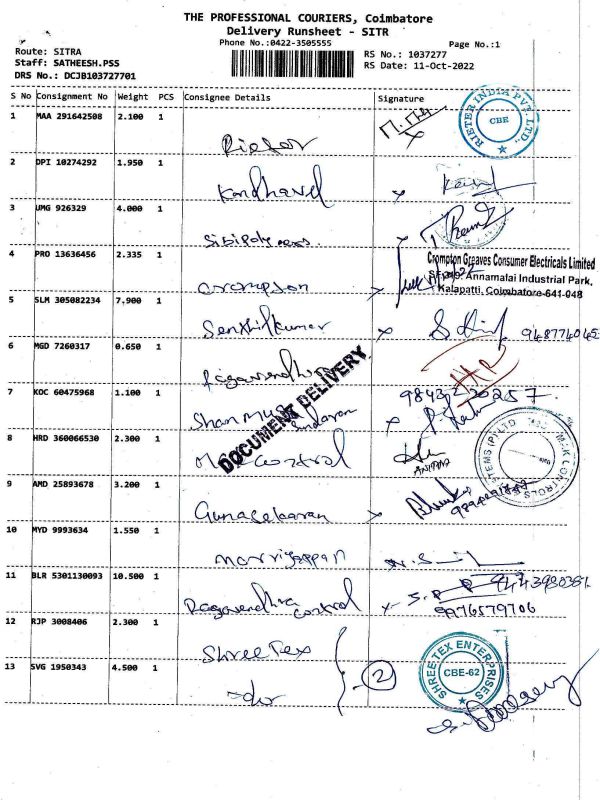 THE PROFESSIONAL COURIERS, Coimbatore
Delivery Runsheet - SITR
Phone No.:0422-3505555
Page No.:1
Route: SITRA
Staff: SATHEESH.PSS
DRS No.: DCJB103727701
RS No.: 1037277
RS Date: 11-Oct-2022
S No Consignment No Weight PCS Consignee Details Signature
1 MAA 291642508 2.100 1 Rieter
RIETER INDIA PVT. LTD., CBE
2 DPI 10274292 1.950 1 Kandhavel x
3 UMG 926329 4.000 1 Sibipolymers
4 PRO 13636456 2.335 1 crompson
Crompton Greaves Consumer Electricals Limited
Annamalai Industrial Park,
Kalapatti, Coimbatore-641 048
5 SLM 305082234 7.900 1 Senthilkumar x
6 MGD 7260317 0.650 1 Ragavendhra
DOCUMENT DELIVERY
7 KOC 60475968 1.100 1 x
8 HRD 360066530 2.300 1 control
9 AMD 25893678 3.200 1 Gunasekaran x
10 MYD 9993634 1.550 1 marriyappan
11 BLR 5301130093 10.500 1 Ragavendhra control x
9976579706
12 RJP 3008406 2.300 1 Shree Tex
SHREE TEX ENTERPRISES CBE-62
13 SVG 1950343 4.500 1 -do- 2